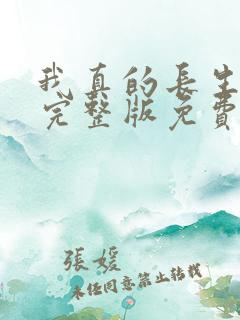 我真的長生
完整版免費
張媛
未經同意禁止轉載